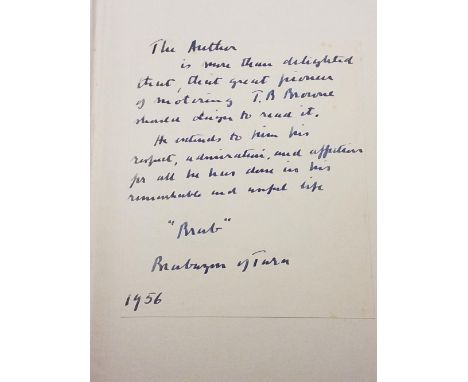 The Author
is more than delighted
that, that great pioneer
of motoring T.B Browne
should deign to read it.
He extends to him his
respect, admiration, and affection
for all he has done in his
remarkable and useful life
"Brab"
Brabazon of Tara
1956